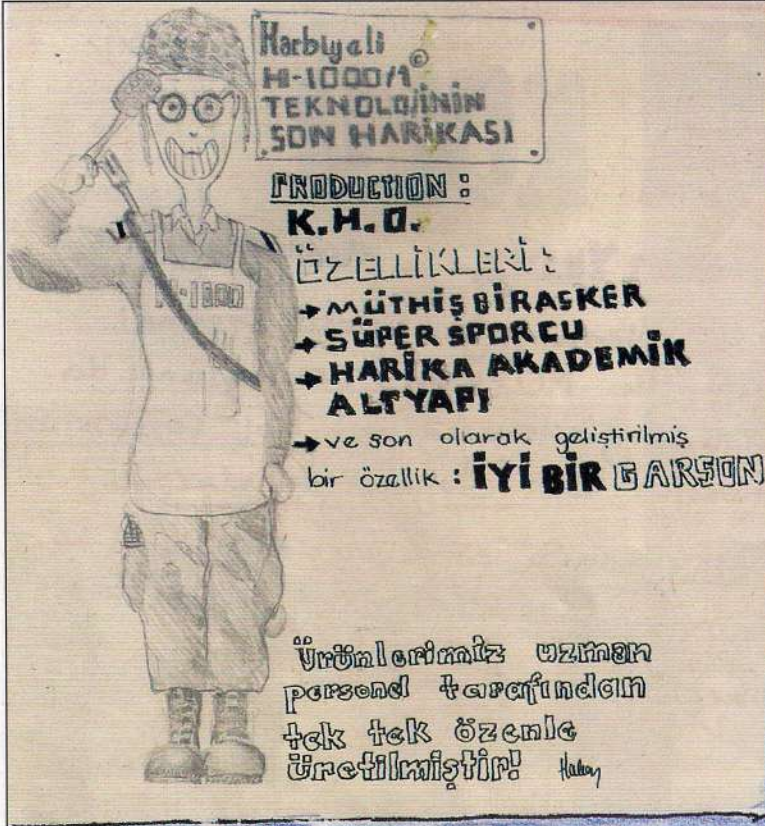 Harbiyeli
H-1000/1©
TEKNOLOJİNİN
SON HARİKASI
PRODUCTION :
K.H.O.
ÖZELLİKLERİ :
H-1000
→ MÜTHİŞ BİR ASKER
→ SÜPER SPORCU
→ HARİKA AKADEMİK
ALTYAPI
→ ve son olarak geliştirilmiş
bir özellik : İYİ BİR GARSON
Ürünlerimiz uzman
personel tarafından
tek tek özenle
üretilmiştir!